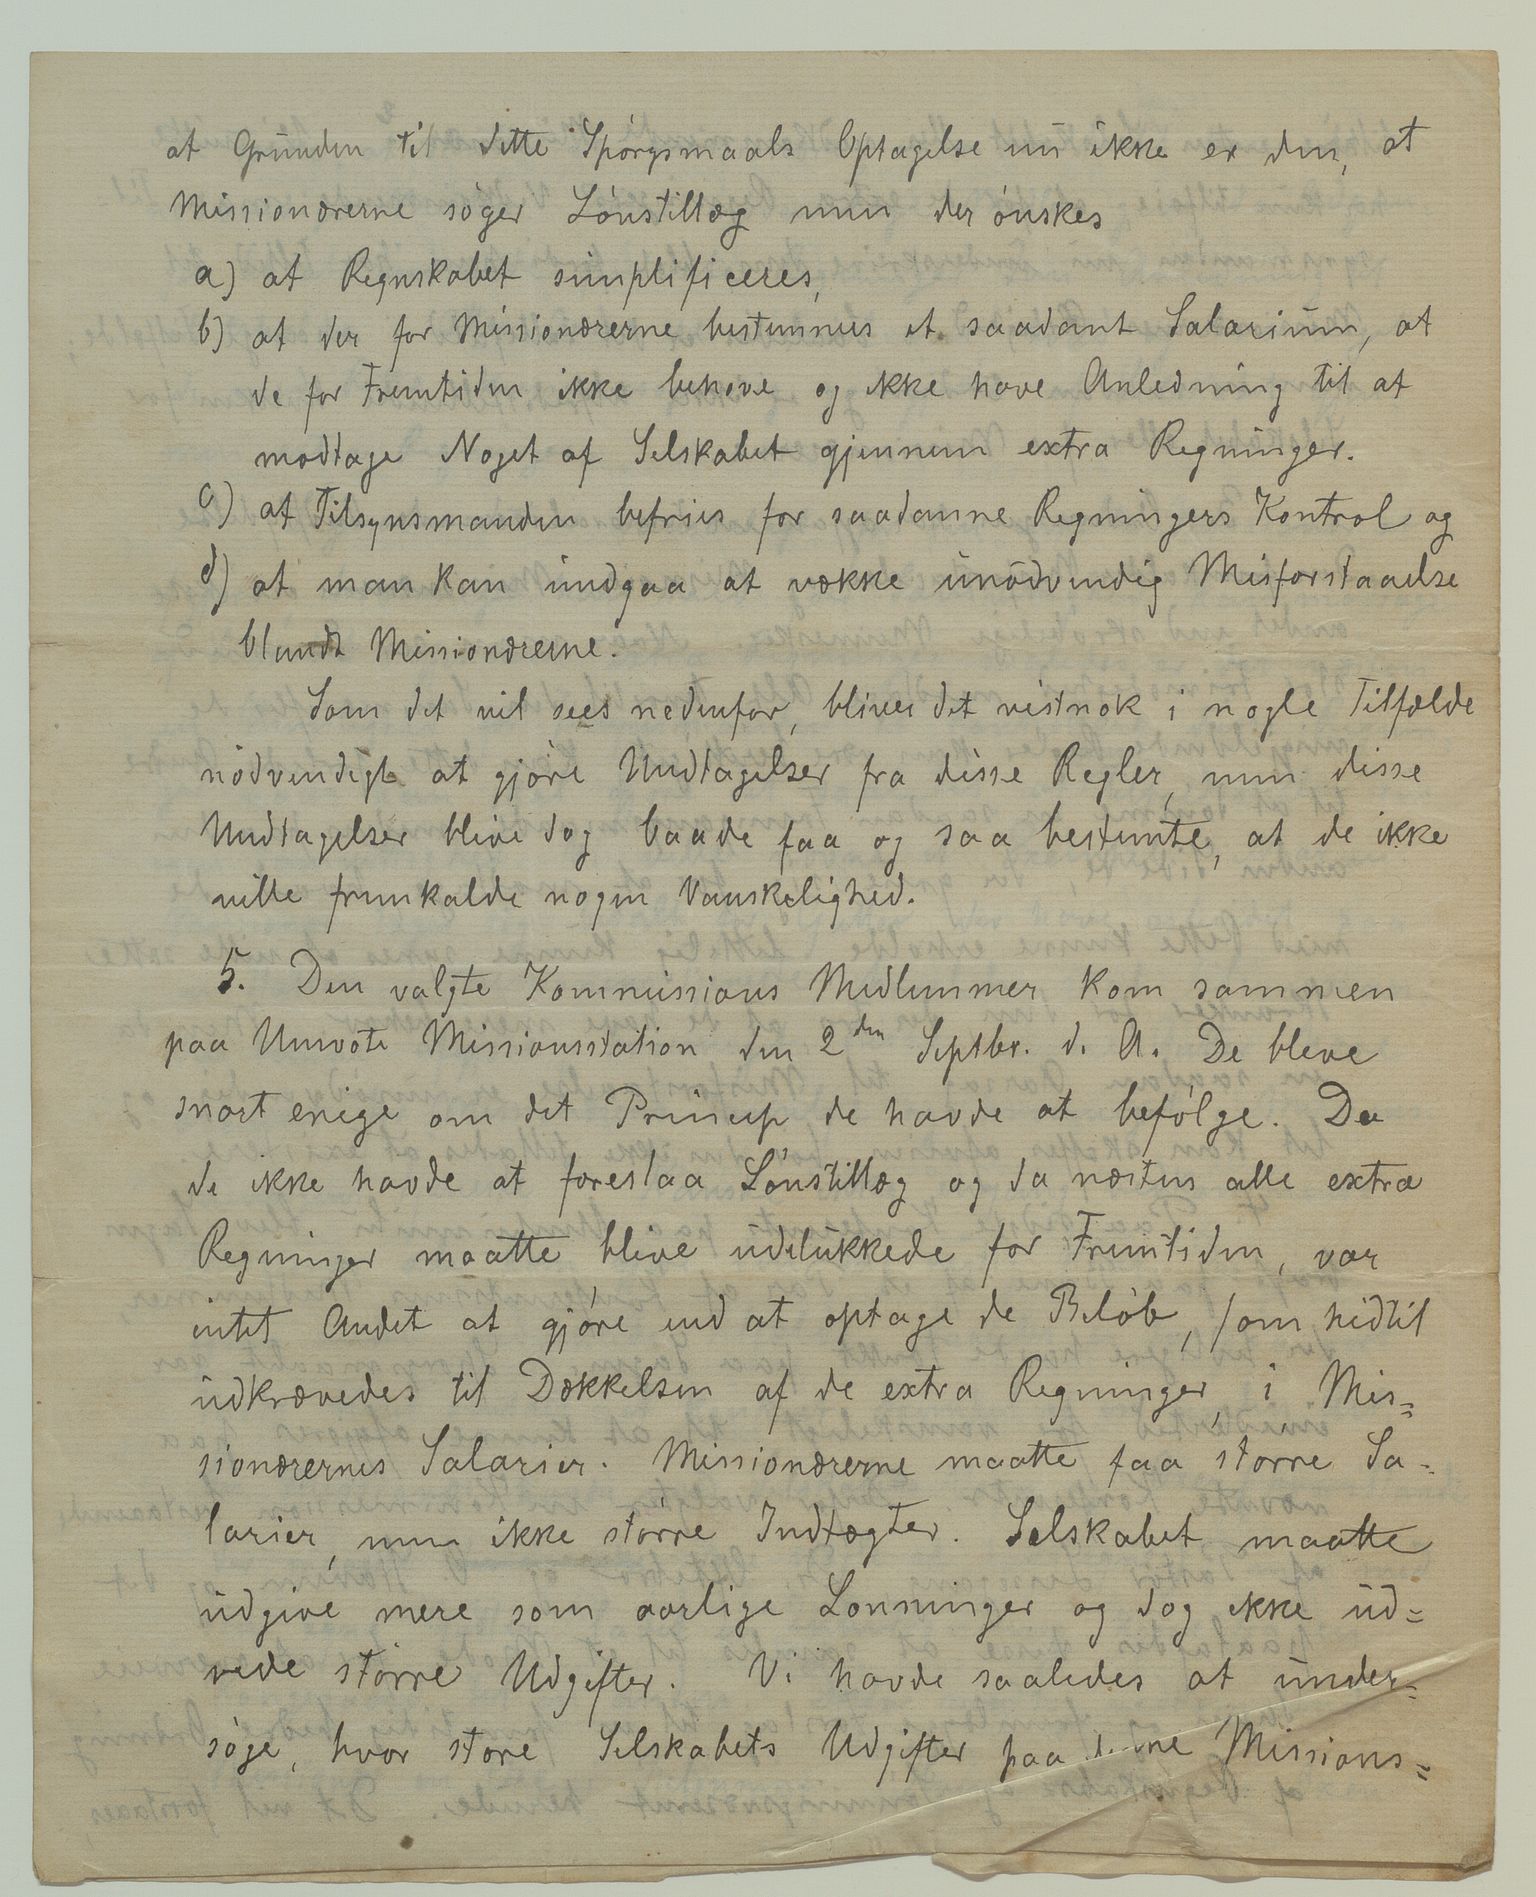 at Grunden til dette Spörgsmaals Optagelse nu ikke er den, at
Missionærerne söger Lönstillæg men der önskes
a) at Regnskabet simplificeres,
b) at der for Missionærerne bestemmes et saadant Salarium, at
de for Fremtiden ikke behöve og ikke have Anledning til at
modtage Noget af Selskabet gjennem extra Regninger.
c) at Tilsynsmanden befries for saadanne Regningers Kontrol og
d) at man kan undgaa at vække unödvendig Misforstaaelse
blandt Missionærerne.
Som det vil sees nedenfor, bliver det vistnok i nogle Tilfælde
nödvendigt at gjöre Undtagelser fra disse Regler, men disse
Undtagelser blive dog baade faa og saa bestemte, at de ikke
ville fremkalde nogen Vanskelighed.
5. Den valgte Kommissions Medlemmer kom sammen
paa Umvoti Missionsstation den 2den Septbr. d. A. De bleve
snart enige om det Princip de havde at befölge. Da
de ikke havde at foreslaa Lönstillæg og da næsten alle extra
Regninger maatte blive udelukkede for Fremtiden, var
intet Andet at gjöre end at optage de Belöb, som hidtil
udkrævedes til Dækkelsen af de extra Regninger, i Mis=
sionærernes Salarier. Missionærerne maatte faa större Sa-
larier, men ikke större Indtægter. Selskabet maatte
udgive mere som aarlige Lönninger og dog ikke ud=
rede större Udgifter. Vi havde saaledes at under=
söge, hvor store Selskabets Udgifter paa denne Missions=